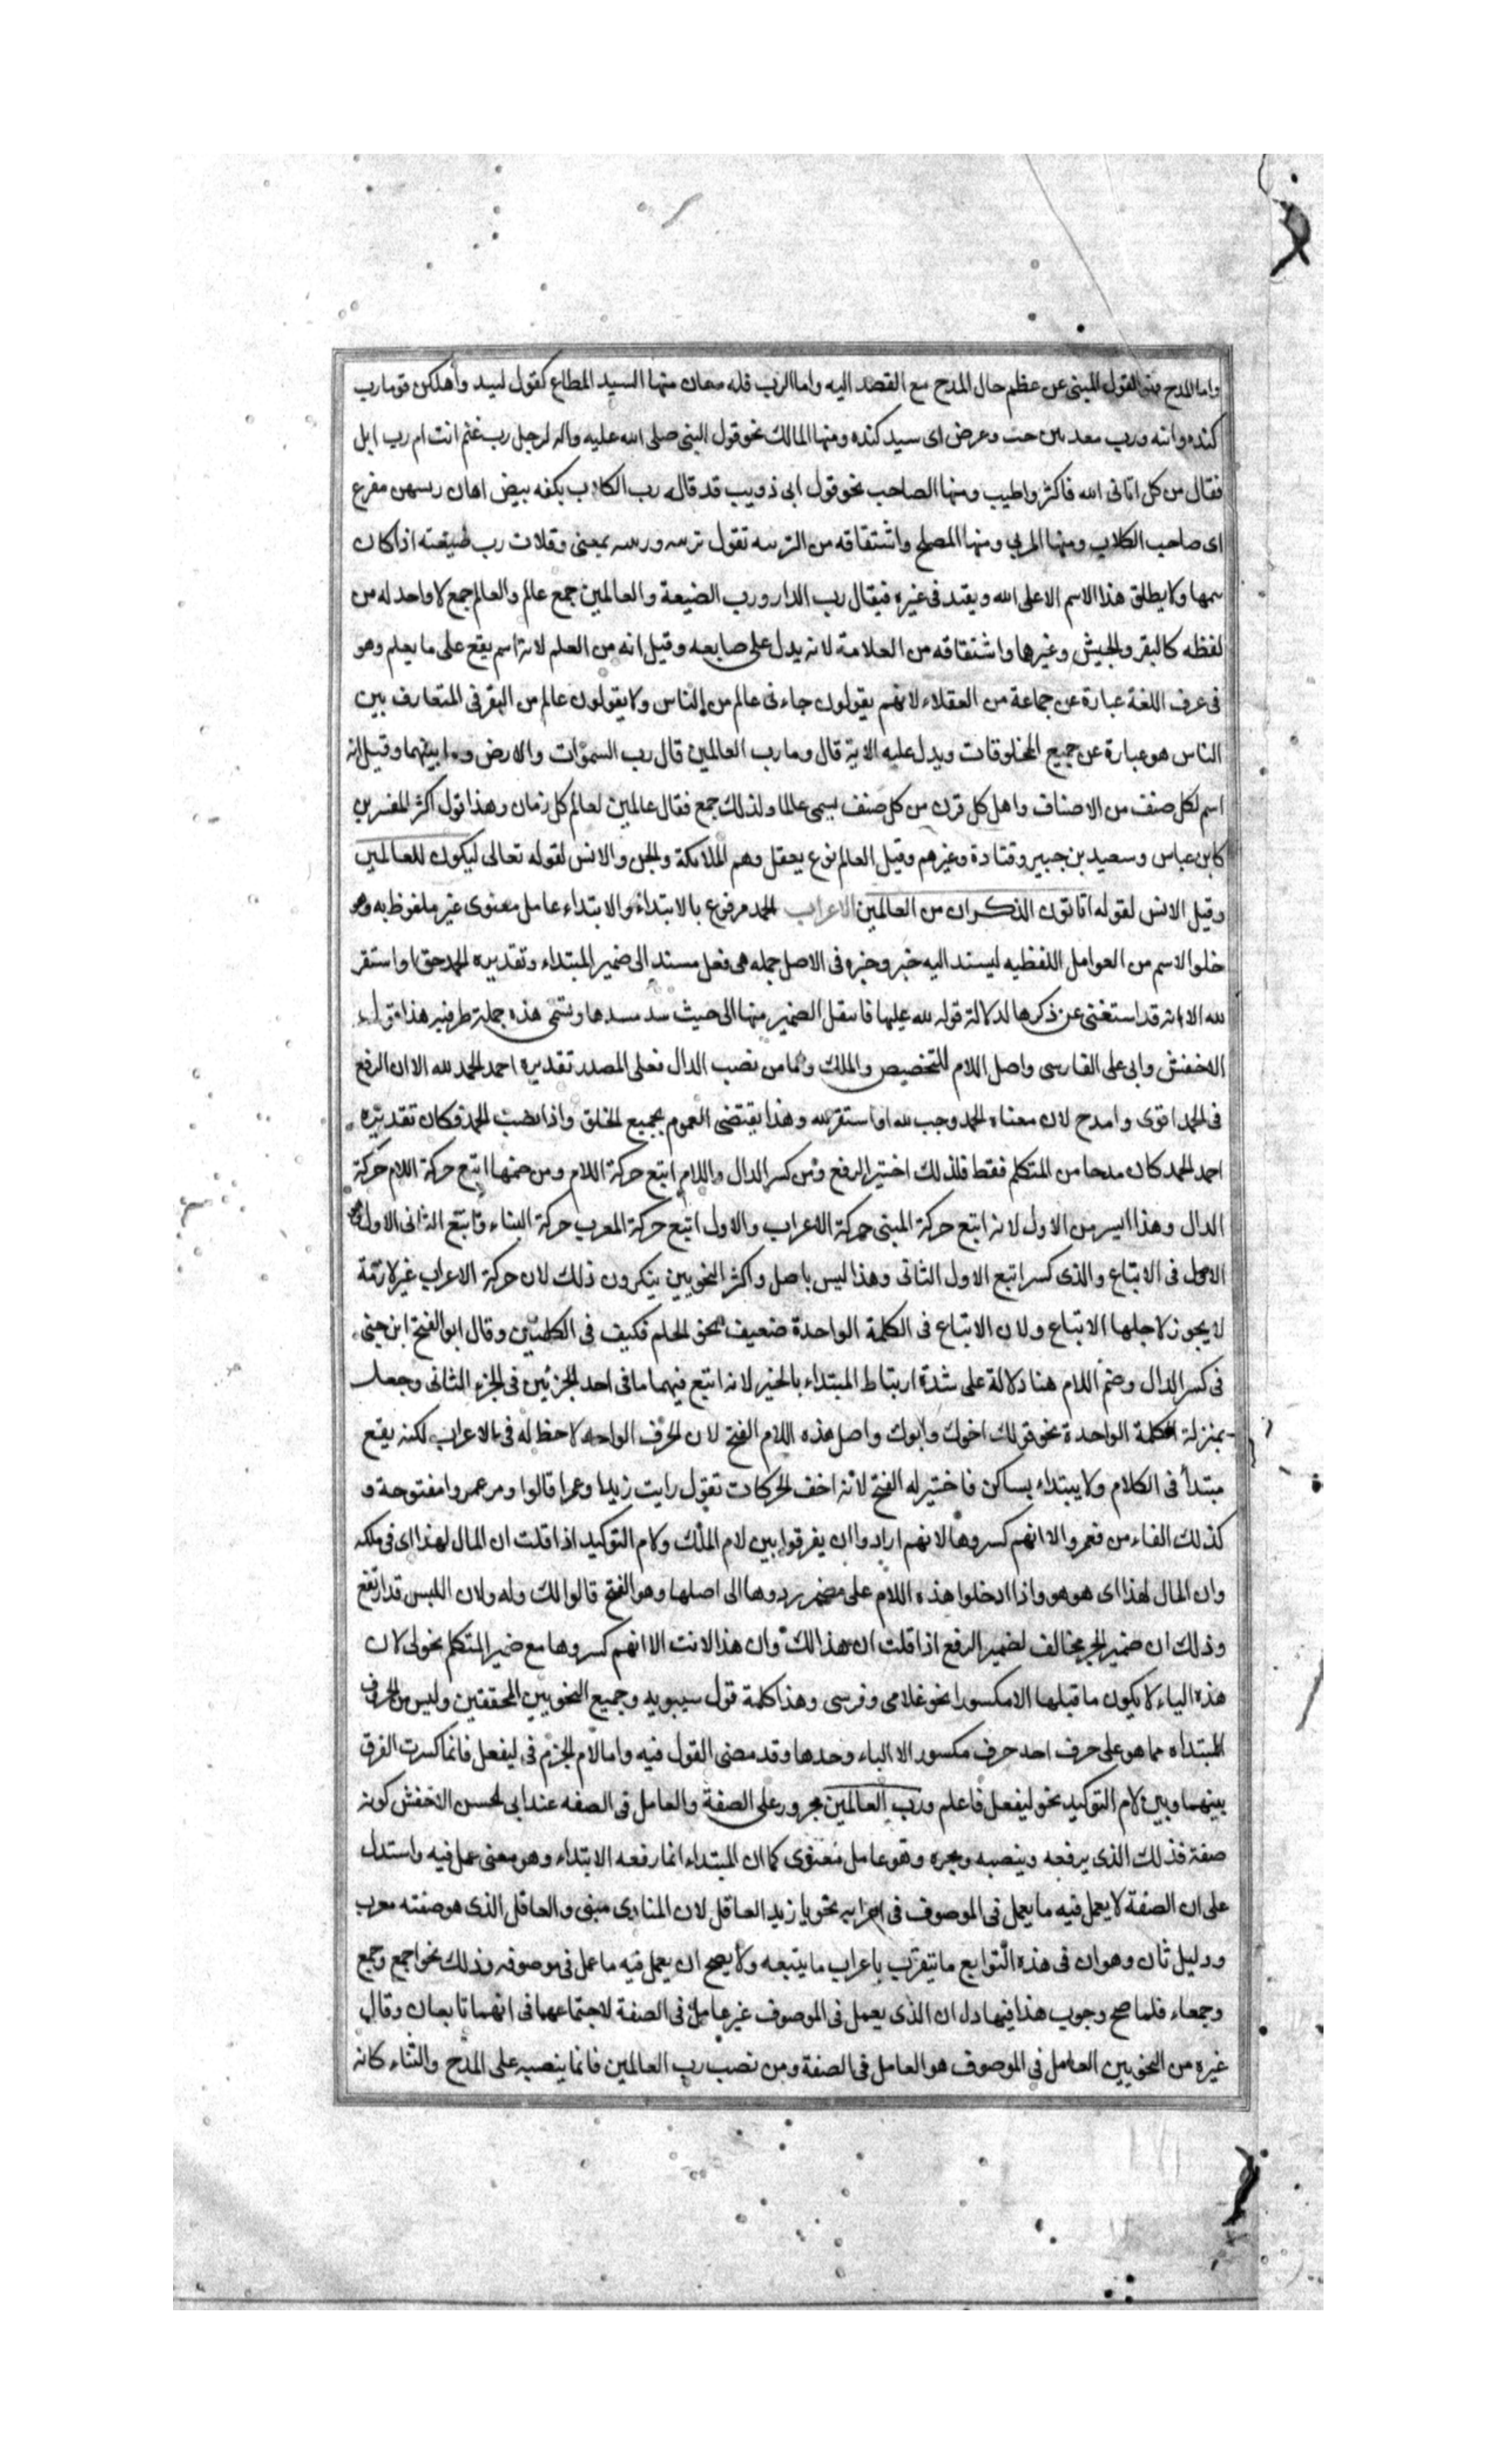 واما المدح فهو القول المبنى عن عظم حال المدح مع القصد اليه واما الرب فله معان منها السيد المطاع كقول لبيد واهلكن قوما رب
كنده وابنه ورب معد بين حت وعرض اى سيد كنده ومنها المالك نحو قول النبى صلى الله عليه واله لرجل رب غنم انت ام رب ابل
فقال من كل اتانى الله فاكثر واطيب ومنها الصاحب نحو قول ابى ذويب قد قاله رب الكلاب بكفه بيض رهاف ريشهن مقزع
اى صاحب الكلاب ومنها المربى ومنها المصلح واشتقاقه من التربيه تقول تربيه وربيه بمعنى وفلان رب ضيعته اذا كان
يتمها ولا يطلق هذا الاسم الا على الله ويقيد فى غيره فيقال رب الدار ورب الضيعة والعالمين جمع عالم والعالم جمع لا واحد له من
لفظه كالبقر والجيش وغيرها واشتقاقه من العلامة لانه يدل على صانعه وقيل انه من العلم لانه اسم يقع على ما يعلم وهو
فى عرف اللغة عبارة عن جماعة من العقلاء لانهم يقولون جاءنى عالم من الناس ولا يقولون عالم من البقر فى المتعارف بين
الناس هو عبارة عن جميع المخلوقات ويدل عليه الاية قال وما رب العالمين قال رب السموات والارض وما بينهما وقيل انه
اسم لكل صنف من الاصناف واهل كل قرن من كل صنف يسمى عالما ولذلك جمع فقال عالمين لعالم كل زمان وهذا قول اكثر المفسرين
كابن عباس وسعيد بن جبير وقتادة وغيرهم وقيل العالم نوع يعقل وهم الملائكة والجن والانس لقوله تعالى ليكون للعالمين
وقيل الانس لقوله اتاتون الذكران من العالمين الاعراب الحمد مرفوع بالابتداء والابتداء عامل معنوى غير ملفوظ به وهو
خلو الاسم من العوامل اللفظيه ليسند اليه خبر وخبره فى الاصل جمله هى فعل مسند الى ضمير المبتداء وتقديره الحمد حق او استقر
لله الا انه قد استغنى عن ذكرها لدلالة قوله لله عليها فانتقل الضمير منها الى حيث سد مسدها وتسمى هذه جملة ظرفيه هذا قول
الاخفش وابى على الفارسى واصل اللام للتخصيص والملك واما من نصب الدال فعلى المصدر تقديره احمد الحمد لله الا ان الرفع
فى الحمد اقوى وامدح لان معناه الحمد وجب لله او استقر لله وهذا يقتضى العموم بجميع الخلق واذا نصبت الحمد فكان تقديره
احمد الحمد كان مدحا من المتكلم فقط فلذلك اختير الرفع ومن كسر الدال واللام اتبع حركة اللام ومن ضمها اتبع حركة اللام حركة
الدال وهذا ايسر من الاول لانه اتبع حركة المبنى حركة الاعراب والاول اتبع حركة المعرب حركة البناء واتبع الثانى الاول
الاصل فى الاتباع والذى كسر اتبع الاول الثانى وهذا ليس باصل واكثر النحويين ينكرون ذلك لان حركة الاعراب غير لازمة
لا يجوز لاجلها الاتباع ولان الاتباع فى الكلمة الواحدة ضعيف نحو الحلم فكيف فى الكلمتين وقال ابو الفتح ابن جنى
فى كسر الدال وضم اللام هنا دلالة على شدة ارتباط المبتداء بالخبر لانه اتبع فيهما ما فى احد الجزئين فى الجزء الثانى وجعل
بمنزلة الكلمة الواحدة نحو قولك اخوك وابوك واصل هذه اللام الفتح لان الحرف الواحد لا حظ له فى الاعراب لكنه يقع
مبتدأ فى الكلام ولا يبتداء بساكن فاختير له الفتح لانه اخف الحركات تقول رايت زيدا وعمرا قالوا ومن عمروا مفتوحة و
كذلك الفاء من فعمروا الا انهم كسروها لانهم ارادوا ان يفرقوا بين لام الملك ولام التوكيد اذا قلت ان المال لهذا اى فى ملكه
وان المال لهذا اى هو هو واذا ادخلوا هذه اللام على مضمر ردوها الى اصلها وهو الفتح قالوا لك وله ولان اللبس قد ارتفع
وذلك ان ضمير الجر مخالف لضمير الرفع اذا قلت ان هذا لك وان هذا لانت الا انهم كسروها مع ضمير المتكلم نحو لى لان
هذه الياء لا يكون ما قبلها الا مكسورا نحو غلامى وفرسى وهذا كلمة قول سيبويه وجميع النحويين المحققين وليس من الحروف
المبتداه مما هو على حرف احد حرف مكسور الا الباء وحدها وقد مضى القول فيه واما لام الجزم فى ليفعل فانما كسرت الفرق
بينهما وبين لام التوكيد نحو ليفعل فاعلم ورب العالمين مجرور على الصفة والعامل فى الصفه عند ابى الحسن الاخفش كونه
صفة فذلك الذى يرفعه وينصبه ويجره وهو عامل معنوى كما ان المبتداء انما رفعه الابتداء وهو معنى عمل فيه واستدل
على ان الصفة لا يعمل فيه ما يعمل فى الموصوف فى اعرابه نحو يا زيد العاقل لان المنادى مبنى والعاقل الذى هو صفته معرب
ودليل ثان وهو ان فى هذه التوابع ما تيعرب باعراب ما يتبعه ولا يصح ان يعمل فيه ما عمل فى موصوفه وذلك نحو اجمع وجمع
وجمعاء فلما صح وجوب هذا فيها دل ان الذى يعمل فى الموصوف غير عامل فى الصفة لاجتماعهما فى انهما تابعان وقال
غيره من النحويين العامل فى الموصوف هو العامل فى الصفة ومن نصب رب العالمين فانما ينصبه على المدح والثناء كانه